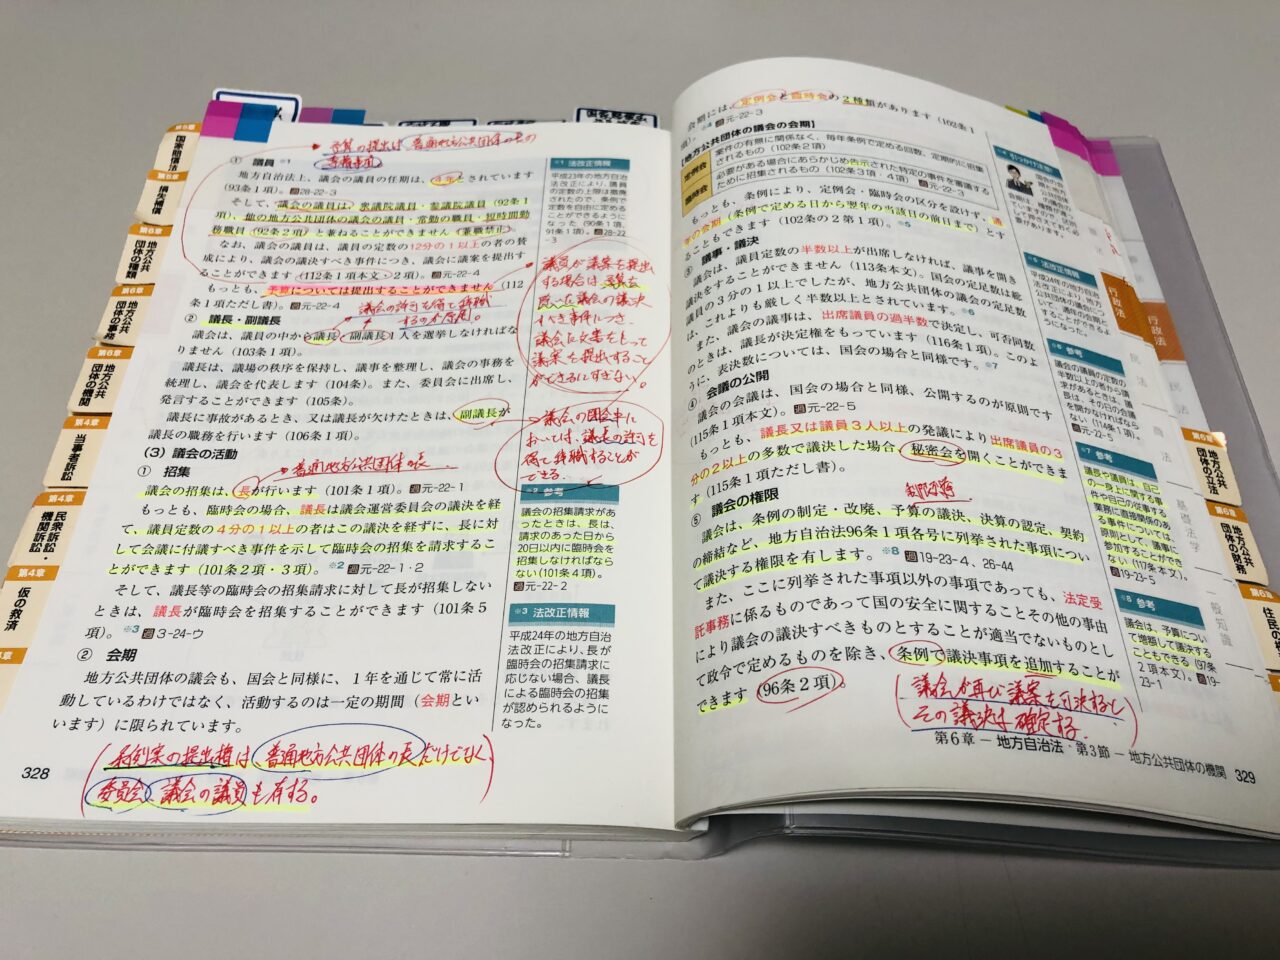 予算の提出は普通地方公共団体の長の
専権事項
① 議員 ※1
地方自治法上、議会の議員の任期は、4年とされています
(93条1項)。過28-22-3
そして、議会の議員は、衆議院議員・参議院議員(92条1
項)、他の地方公共団体の議会の議員・常勤の職員・短時間勤
務職員(92条2項)と兼ねることができません(兼職禁止)。
なお、議会の議員は、議員の定数の12分の1以上の者の賛
成により、議会の議決すべき事件につき、議会に議案を提出す
ることができます(112条1項本文・2項)。過元-22-4
もっとも、予算については提出することができません(112
条1項ただし書)。過元-22-4
議会の許可を得て辞職
するのが原則。
② 議長・副議長
議会は、議員の中から議長、副議長1人を選挙しなければな
りません(103条1項)。
議長は、議場の秩序を保持し、議事を整理し、議会の事務を
統理し、議会を代表します(104条)。また、委員会に出席し、
発言することができます(105条)。
議長に事故があるとき、又は議長が欠けたときは、副議長が
議長の職務を行います(106条1項)。
(3) 議会の活動
① 招集
普通地方公共団体の長
議会の招集は、長が行います(101条1項)。過元-22-1
もっとも、臨時会の場合、議長は議会運営委員会の議決を経
て、議員定数の4分の1以上の者はこの議決を経ずに、長に対
して会議に付議すべき事件を示して臨時会の招集を請求するこ
とができます(101条2項・3項)。※2 過元-22-1・2
そして、議長等の臨時会の招集請求に対して長が招集しない
ときは、議長が臨時会を招集することができます(101条5
項)。※3 過3-24-ウ
② 会期
地方公共団体の議会も、国会と同様に、1年を通じて常に活
動しているわけではなく、活動するのは一定の期間(会期とい
います)に限られています。
条例案の提出権は、普通地方公共団体の長だけでなく、
委員会、議会の議員も有する。
328
※1 法改正情報
平成23年の地方自治
法改正により、議員
の定数の上限は撤廃
されたので、条例で
定数を自由に定める
ことができるように
なった(90条1項、
91条1項)。過28-22
-3
議員が議案を提出
する場合は、予算を
除いた議会の議決
すべき事件につき、
議会に文書をもって
議案を提出すること
ができるにすぎない。
議会の閉会中に
おいては、議長の許可を
得て辞職することが
できる。
※2 参考
議会の招集請求があ
ったときは、長は、
請求のあった日から
20日以内に臨時会を
招集しなければなら
ない(101条4項)。
過元-22-2
※3 法改正情報
平成24年の地方自治
法改正により、長が
臨時会の招集請求に
応じない場合、議長
による臨時会の招集
が認められるように
なった。
会期には、定例会と臨時会の2種類があります(102条1
項)。※4 過元-22-3
【地方公共団体の議会の会期】
定例会
案件の有無に関係なく、毎年条例で定める回数、定期的に招集
されるもの(102条2項)
臨時会
必要がある場合にあらかじめ告示された特定の事件を審議する
ために招集されるもの(102条3項・4項) 過元-22-3
もっとも、条例により、定例会・臨時会の区分を設けず、通
年の会期(条例で定める日から翌年の当該日の前日まで)とす
ることもできます(102条の2第1項)。※5
③ 議事・議決
議会は、議員定数の半数以上が出席しなければ、議事を開き
議決をすることができません(113条本文)。国会の定足数は総
議員の3分の1以上でしたが、地方公共団体の議会の定足数
は、これよりも厳しく半数以上とされています。※6
また、議会の議事は、出席議員の過半数で決定し、可否同数
のときは、議長が決定権をもっています(116条1項)。このよ
うに、表決数については、国会の場合と同様です。※7
④ 会議の公開
議会の会議は、国会の場合と同様、公開するのが原則です
(115条1項本文)。過元-22-5
もっとも、議長又は議員3人以上の発議により出席議員の3
分の2以上の多数で議決した場合、秘密会を開くことができま
す(115条1項ただし書)。
制限列挙
⑤ 議会の権限
議会は、条例の制定・改廃、予算の議決、決算の認定、契約
の締結など、地方自治法96条1項各号に列挙された事項につい
て議決する権限を有します。※8 過19-23-4、26-44
また、ここに列挙された事項以外の事項であっても、法定受
託事務に係るものであって国の安全に関することその他の事由
により議会の議決すべきものとすることが適当でないものとし
て政令で定めるものを除き、条例で議決事項を追加することが
できます(96条2項)。
議会が再び議案を可決すると
その議決は確定する。
第6章 ― 地方自治法・第3節 ― 地方公共団体の機関 329
※4 引っかけ注意!
※5 法改正情報
平成24年の地方自治
法改正により、地方
公共団体の議会につ
いて、通年の会期と
することができるよ
うになった。
※6 参考
議会の議員の定数の
半数以上の者から請
求があるときは、議
長は、その日の会議
を開かなければなら
ない(114条1項)。
過元-22-5
※7 参考
議長や議員は、自己
の一身上に関する事
件や自己の従事する
業務に直接関係のあ
る事件については、
原則として、議事に
参加することができ
ない(117条本文)。
過19-23-5
※8 参考
議会は、予算につい
て増額して議決する
こともできる(97条
2項本文)。過19-
23-1
第5章
国家賠償法
第5章
損失補償
第6章
地方公共
団体の種類
第6章
地方公共
団体の事務
第6章
地方公共
団体の機関
第4章
当事者訴訟
第4章
民衆訴訟・
機関訴訟
第4章
仮の救済
行政法
行政法
民法
商法
基礎法学
一般知識
第6章
地方公共
団体の立法
第6章
地方公共
団体の財務
第6章